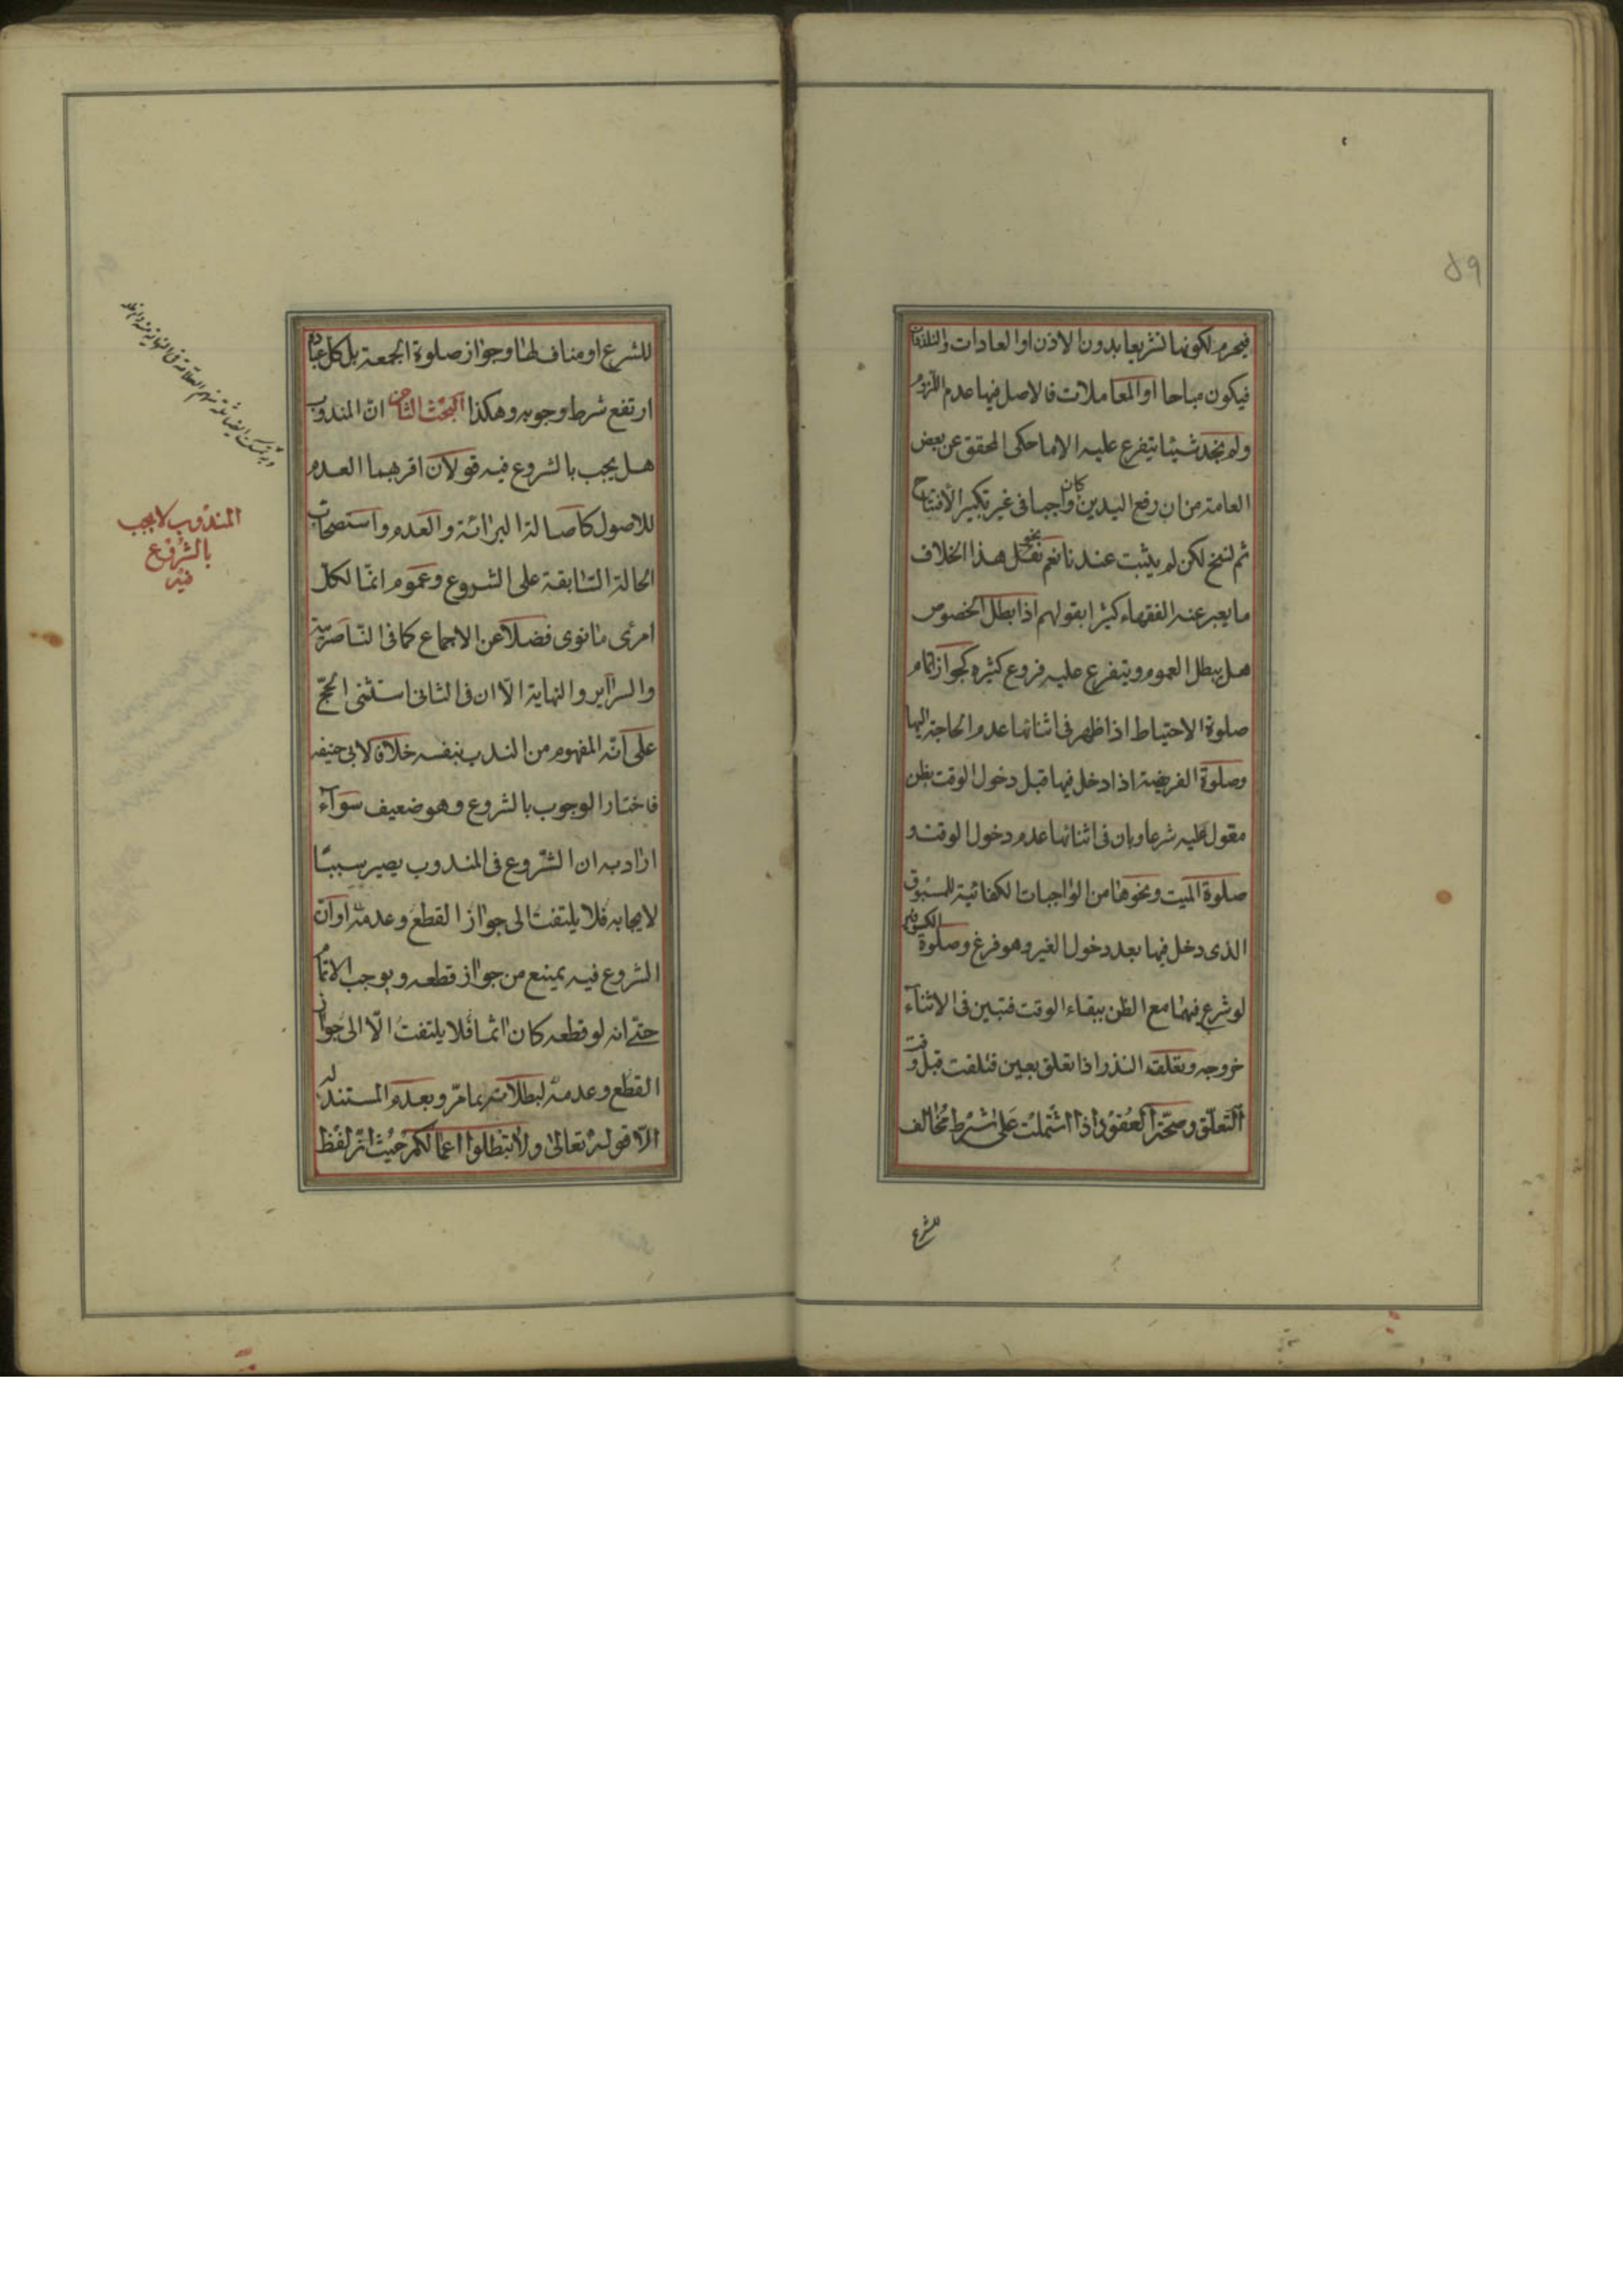 ٥٩
فيحرم لكونها تشريعا بدون الاذن او العادات والتلذذات
فيكون مباحا او المعاملات فالاصل فيها عدم اللزوم
ولم نجد شيئا يتفرع عليه الا ما حكى المحقق عن بعض
العامة من ان رفع اليدين كان واجبا فى غير تكبير الافتتاح
ثم نسخ لكن لم يثبت عندنا نعم نحو نقل هذا الخلاف
ما يعبر عنه الفقهاء كثيرا بقولهم اذا بطل الخصوص
هل يبطل العموم ويتفرع عليه فروع كثيره كجواز اتمام
صلوة الاحتياط اذا ظهر فى اثنائها عدم الحاجة اليها
وصلوة الفريضة اذا دخل فيها قبل دخول الوقت بظن
معول عليه شرعا وبان فى اثنائها عدم دخول الوقت و
صلوة الميت ونحوها من الواجبات الكفائية للمسبوق
الذى دخل فيها بعد دخول الغير وهو فرغ وصلوة الكسوفين
لو شرع فيهما مع الظن ببقاء الوقت فتبين فى الاثناء
خروجه وتعلقه النذر اذا تعلق بعين فتلفت قبل وقت
التعلق وصحة العقود اذا اشتملت على شرط مخالف
للشرع
للشرع او مناف لها وجواز صلوة الجمعة بل كل عبادة
ارتفع شرط وجوبه وهكذا البحث الثامن ان المندوب
هل يجب بالشروع فيه قولان اقربهما العدم
للاصول كاصالة البرائة والعدم واستصحاب
الحالة السابقة على الشروع وعموم انما لكل
امرئ ما نوى فضلا عن الاجماع كما فى الناصرية
والسرآير والنهاية الا ان فى الثانى استثنى الحج
على انه المفهوم من الندب بنفسه خلافا لابى حنيفه
فاختار الوجوب بالشروع وهو ضعيف سوآء
اراد به ان الشروع فى المندوب يصير سببا
لايجابه فلا يلتفت الى جواز القطع وعدمه او ان
الشروع فيه يمنع من جواز قطعه ويوجب الاتمام
حتى انه لو قطعه كان اثما فلا يلتفت الا الى جواز
القطع وعدمه لبطلانه بما مر وبعدم المستند له
الا قوله تعالى ولا تبطلوا اعمالكم حيث ان لفظ
المندوب لا يجب
بالشروع
فيه